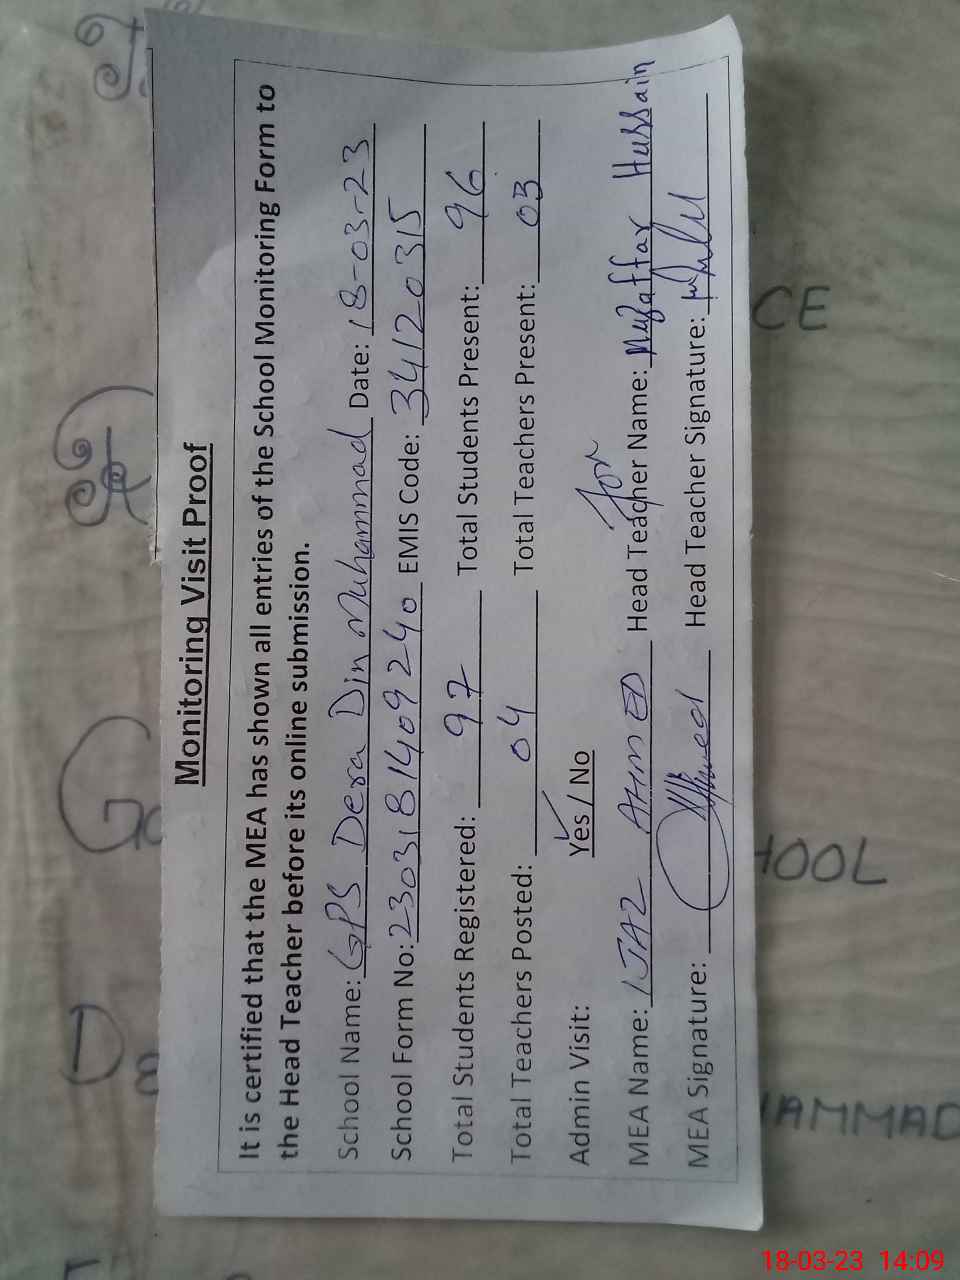 Monitoring Visit Proof
It is certified that the MEA has shown all entries of the School Monitoring Form to
the Head Teacher before its online submission.
School Name: GPS Dera Din Muhammad Date: 18-03-23
School Form No: 230318140924o EMIS Code: 34120315
Total Students Registered: 97 Total Students Present: 96
Total Teachers Posted: 04 Total Teachers Present: 03
Admin Visit: Yes / No
for
MEA Name: IJAZ AHMED Head Teacher Name: Muzaffar Hussain
MEA Signature: Ahmed Head Teacher Signature:
CE
HOOL
HAMMAD
18-03-23 14:09